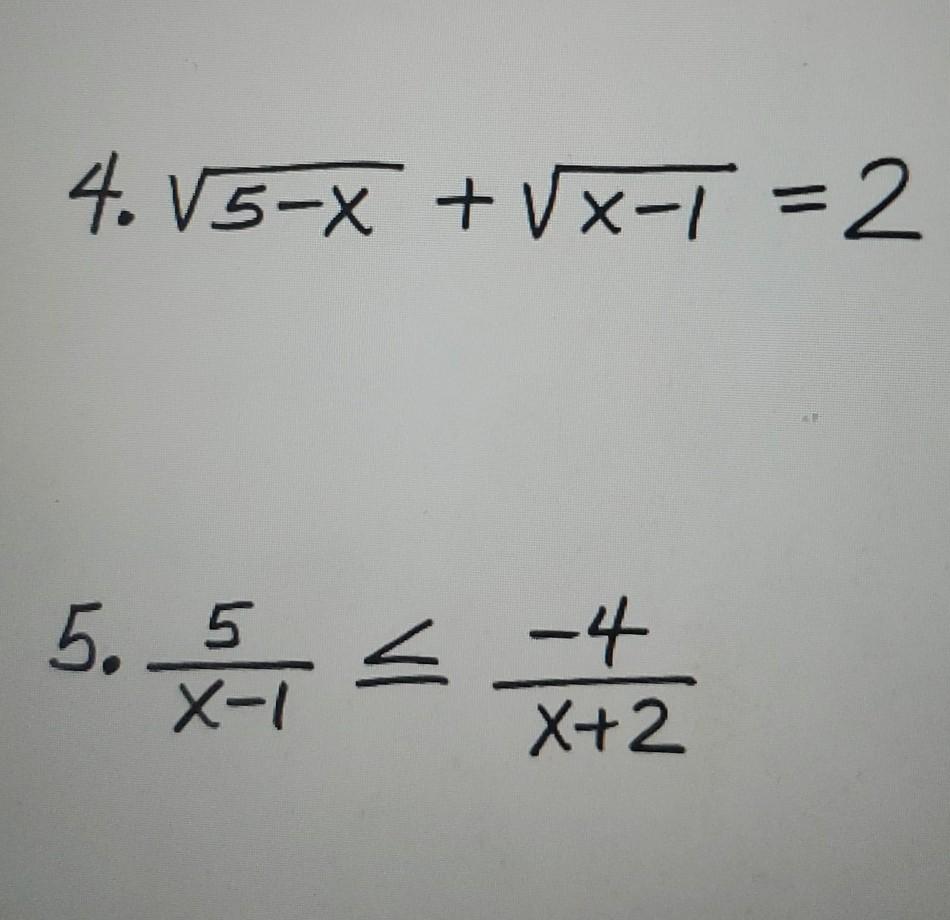 4. √5-x + √x-1 = 2
5. 5/x-1 ≤ -4/x+2